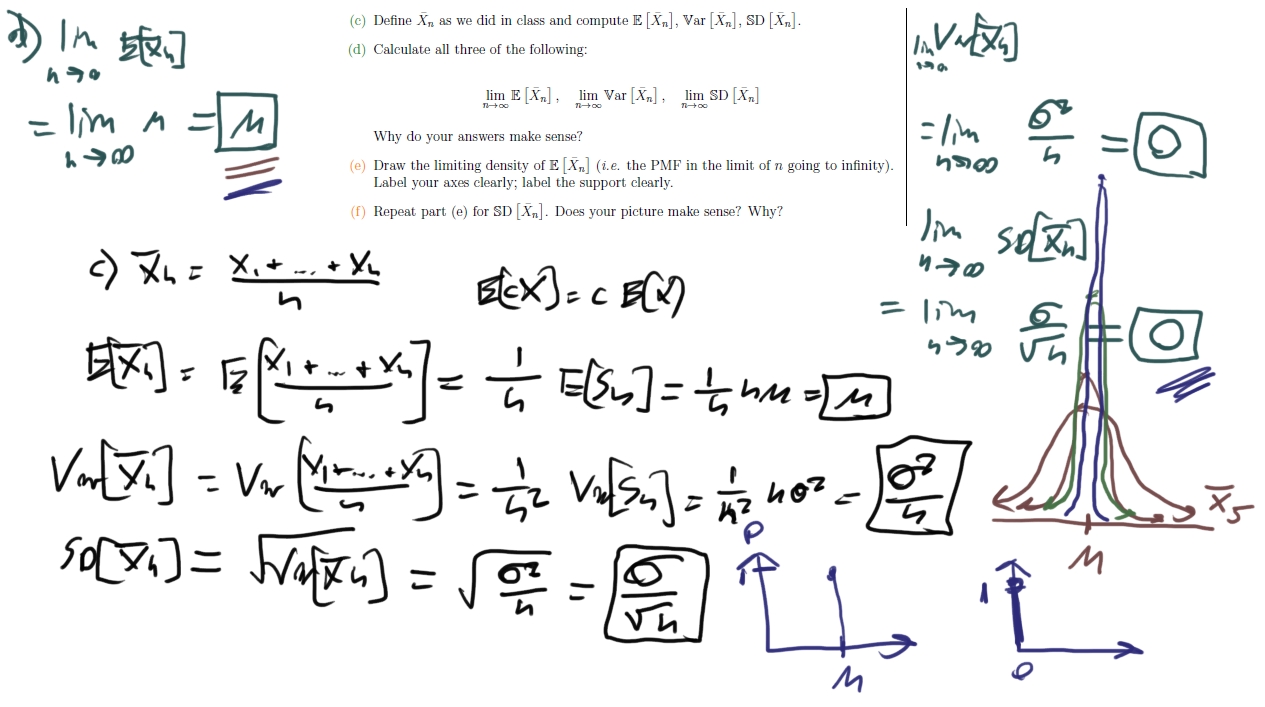 (c) Define X̄ₙ as we did in class and compute 𝔼 [X̄ₙ], 𝕍ar [X̄ₙ], 𝕊𝔻 [X̄ₙ].
(d) Calculate all three of the following:
lim n→∞ 𝔼 [X̄ₙ], lim n→∞ 𝕍ar [X̄ₙ], lim n→∞ 𝕊𝔻 [X̄ₙ]
Why do your answers make sense?
(e) Draw the limiting density of 𝔼 [X̄ₙ] (i.e. the PMF in the limit of n going to infinity).
Label your axes clearly; label the support clearly.
(f) Repeat part (e) for 𝕊𝔻 [X̄ₙ]. Does your picture make sense? Why?
d) lim n→∞ E[X̄ₙ]
= lim n→∞ μ = μ
lim n→∞ Var[X̄ₙ]
= lim n→∞ σ²/n = 0
lim n→∞ SD[X̄ₙ]
= lim n→∞ σ/√n = 0
c) X̄ₙ = (X₁ + ... + Xₙ)/n
E[cX] = c E(X)
E[X̄ₙ] = E[(X₁ + ... + Xₙ)/n] = 1/n E[Sₙ] = 1/n nμ = μ
Var[X̄ₙ] = Var[(X₁ + ... + Xₙ)/n] = 1/n² Var[Sₙ] = 1/n² nσ² = σ²/n
SD[X̄ₙ] = √Var[X̄ₙ] = √(σ²/n) = σ/√n
X̄₅
μ
P
1
μ
1
0